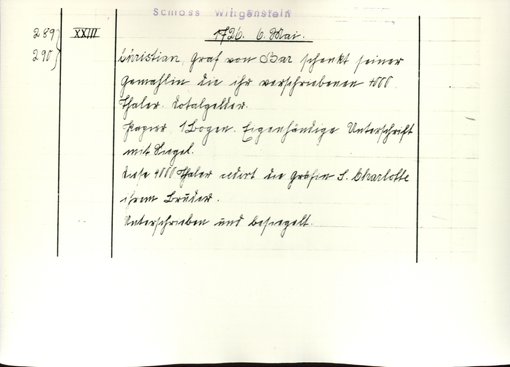 Schloss Wittgenstein
289) XXIII 1726. 6. Mai.
290) Christian, Graf von Bar schenkt seiner
Gemahlin die ihr verschriebenen 4000
Thaler Dotalgelder.
Papier. 1 Bogen. Eigenhändige Unterschrift
mit Siegel.
Diese 4000 Thaler cediert die Gräfin S. Charlotte
ihrem Bruder.
Unterschrieben und besiegelt.